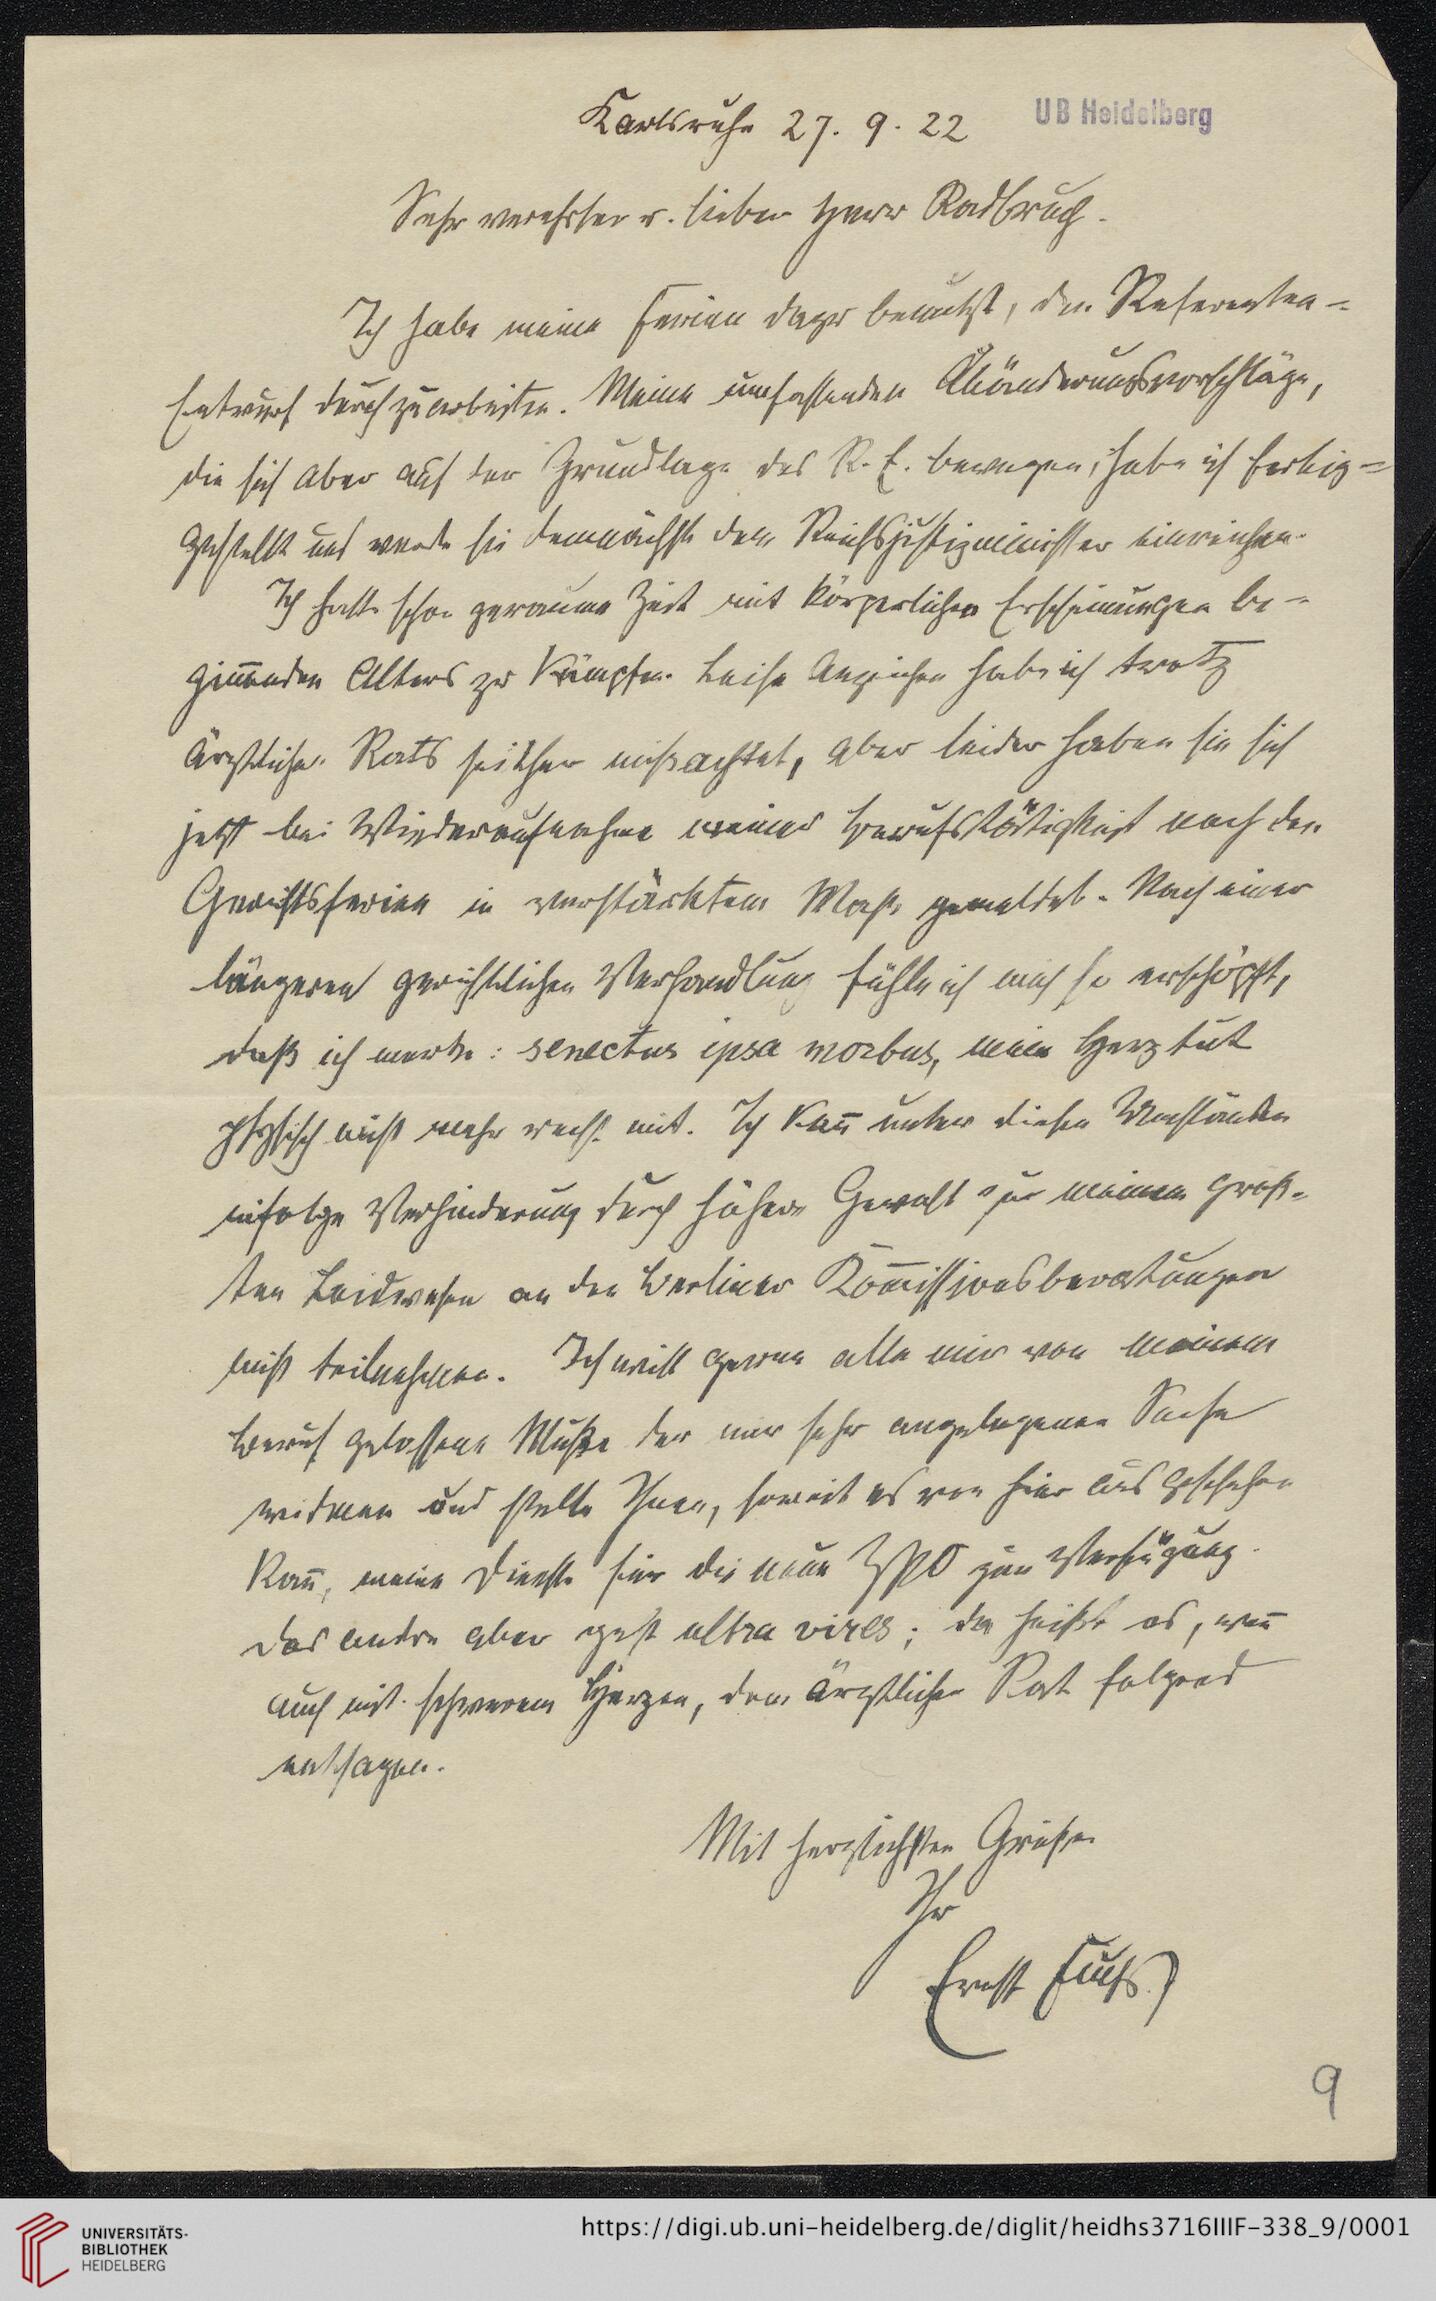 Karlsruhe 27. 9. 22
UB Heidelberg
Sehr verehrter u. lieber Herr Radbruch.
Ich habe meine Ferien dazu benutzt, den Referenten-
Entwurf durchzuarbeiten. Meine umfassenden Abänderungsvorschläge,
die sich aber auf der Grundlage des R. E. bewegen, habe ich fertig-
gestellt und werde sie demnächst dem Reichsjustizminister einreichen.
Ich hatte schon geraume Zeit mit körperlichen Erscheinungen be-
ginnenden Alters zu kämpfen. Leise Anzeichen habe ich trotz
ärztlichen Rats seither mißachtet, aber leider haben sie sich
jetzt bei Wiederaufnahme meiner Berufstätigkeit nach den
Gerichtsferien in verstärktem Maße gemeldet. Nach einer
längeren gerichtlichen Verhandlung fühle ich mich so erschöpft,
daß ich merke: senectus ipsa morbus, mein Herz tut
physisch nicht mehr recht mit. Ich kann unter diesen Umständen
infolge Verhinderung durch höhere Gewalt zu meinem größ-
ten Leidwesen an den Berliner Kommissionsberatungen
nicht teilnehmen. Ich will gerne alle mir von meinem
Beruf gelassene Muße der mir sehr angelegenen Sache
widmen und stelle Ihnen, soweit es von hier aus geschehen
kann, meine Dienste für die neue ZPO zur Verfügung.
Das andre aber geht ultra vires; da heißt es, wenn
auch mit schwerem Herzen, dem ärztlichen Rat folgend
entsagen.
Mit herzlichsten Grüßen
Ihr
Ernst Fuchs.
9
UNIVERSITÄTS-
BIBLIOTHEK
HEIDELBERG
https://digi.ub.uni-heidelberg.de/diglit/heidhs3716IIIF-338_9/0001